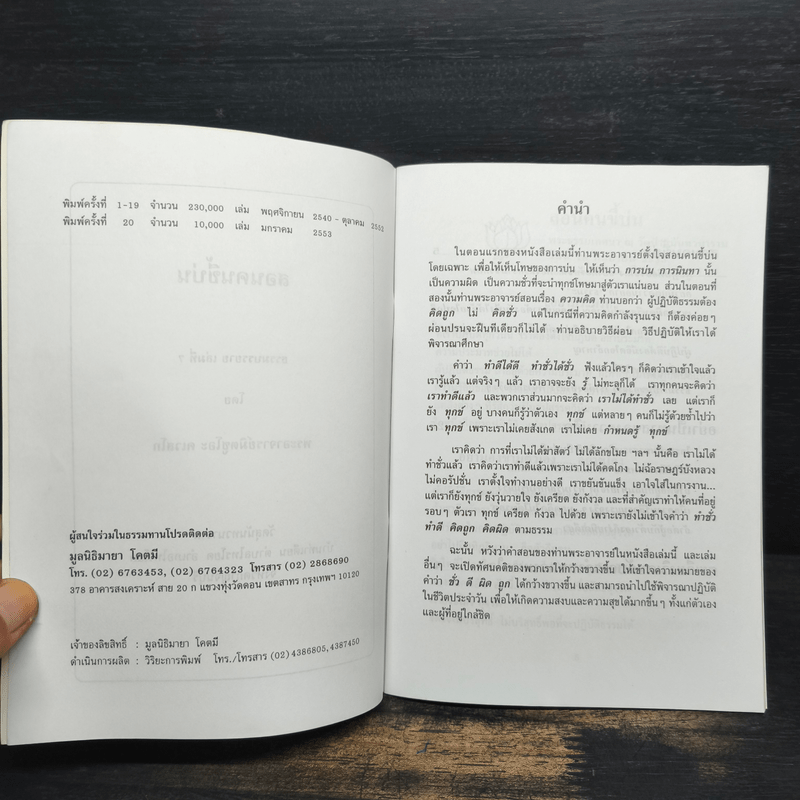 พิมพ์ครั้งที่ 1-19 จำนวน 230,000 เล่ม พฤศจิกายน 2540 - ตุลาคม 2552
พิมพ์ครั้งที่ 20 จำนวน 10,000 เล่ม มกราคม 2553
สอนคนขี้บ่น
โดย
ผู้สนใจร่วมในธรรมทานโปรดติดต่อ
มูลนิธิมายา โคตมี
โทร. (02) 6763453, (02) 6764323 โทรสาร (02) 2868690
378 อาคารสงเคราะห์ สาย 20 ก แขวงทุ่งวัดดอน เขตสาทร กรุงเทพฯ 10120
เจ้าของลิขสิทธิ์ : มูลนิธิมายา โคตมี
ดำเนินการผลิต : วิริยะการพิมพ์ โทร./โทรสาร (02) 4386805, 4387450
คำนำ
ในตอนแรกของหนังสือเล่มนี้ท่านพระอาจารย์ตั้งใจสอนคนขี้บ่น
โดยเฉพาะ เพื่อให้เห็นโทษของการบ่น ให้เห็นว่า การบ่น การนินทา นั้น
เป็นความผิด เป็นความชั่วที่จะนำทุกข์โทษมาสู่ตัวเราแน่นอน ส่วนในตอนที่
สองนั้นท่านพระอาจารย์สอนเรื่อง ความคิด ท่านบอกว่า ผู้ปฏิบัติธรรมต้อง
คิดถูก ไม่ คิดชั่ว แต่ในกรณีที่ความคิดกำลังรุนแรง ก็ต้องค่อยๆ
ผ่อนปรนจะฝืนทีเดียวก็ไม่ได้ ท่านอธิบายวิธีผ่อน วิธีปฏิบัติให้เราได้
พิจารณาศึกษา
คำว่า ทำดีได้ดี ทำชั่วได้ชั่ว ฟังแล้วใครๆ ก็คิดว่าเราเข้าใจแล้ว
เรารู้แล้ว แต่จริงๆ แล้ว เราอาจจะยัง รู้ ไม่ทะลุก็ได้ เราทุกคนจะคิดว่า
เราทำดีแล้ว และพวกเราส่วนมากจะคิดว่า เราไม่ได้ทำชั่ว เลย แต่เราก็
ยัง ทุกข์ อยู่ บางคนก็รู้ว่าตัวเอง ทุกข์ แต่หลายๆ คนก็ไม่รู้ด้วยซ้ำไปว่า
เรา ทุกข์ เพราะเราไม่เคยสังเกต เราไม่เคย กำหนดรู้ ทุกข์
เราคิดว่า การที่เราไม่ได้ฆ่าสัตว์ ไม่ได้ลักขโมย ฯลฯ นั้นคือ เราไม่ได้
ทำชั่วแล้ว เราคิดว่าเราทำดีแล้วเพราะเราไม่ได้คดโกง ไม่ฉ้อราษฎร์บังหลวง
ไม่คอรัปชั่น เราตั้งใจทำงานอย่างดี เราขยันขันแข็ง เอาใจใส่ในการงาน...
แต่เราก็ยังทุกข์ ยังวุ่นวายใจ ยังเครียด ยังกังวล และที่สำคัญเราทำให้คนที่อยู่
รอบๆ ตัวเรา ทุกข์ เครียด กังวล ไปด้วย เพราะเรายังไม่เข้าใจคำว่า ทำชั่ว
ทำดี คิดถูก คิดผิด ตามธรรม
ฉะนั้น หวังว่าคำสอนของท่านพระอาจารย์ในหนังสือเล่มนี้ และเล่ม
อื่นๆ จะเปิดทัศนคติของพวกเราให้กว้างขวางขึ้น ให้เข้าใจความหมายของ
คำว่า ชั่ว ดี ผิด ถูก ได้กว้างขวางขึ้น และสามารถนำไปใช้พิจารณาปฏิบัติ
ในชีวิตประจำวัน เพื่อให้เกิดความสงบและความสุขได้มากขึ้นๆ ทั้งแก่ตัวเอง
และผู้ที่อยู่ใกล้ชิด